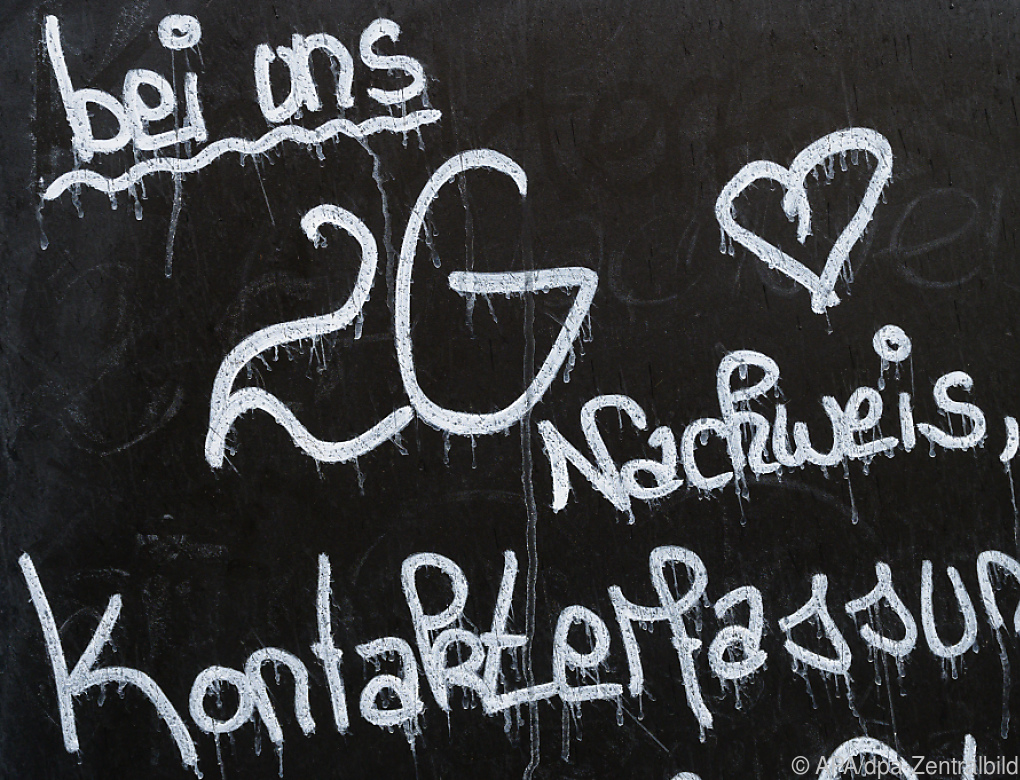 bei uns
2G
Nachweis,
Kontakterfassun
© APA/dpa-Zentralbild